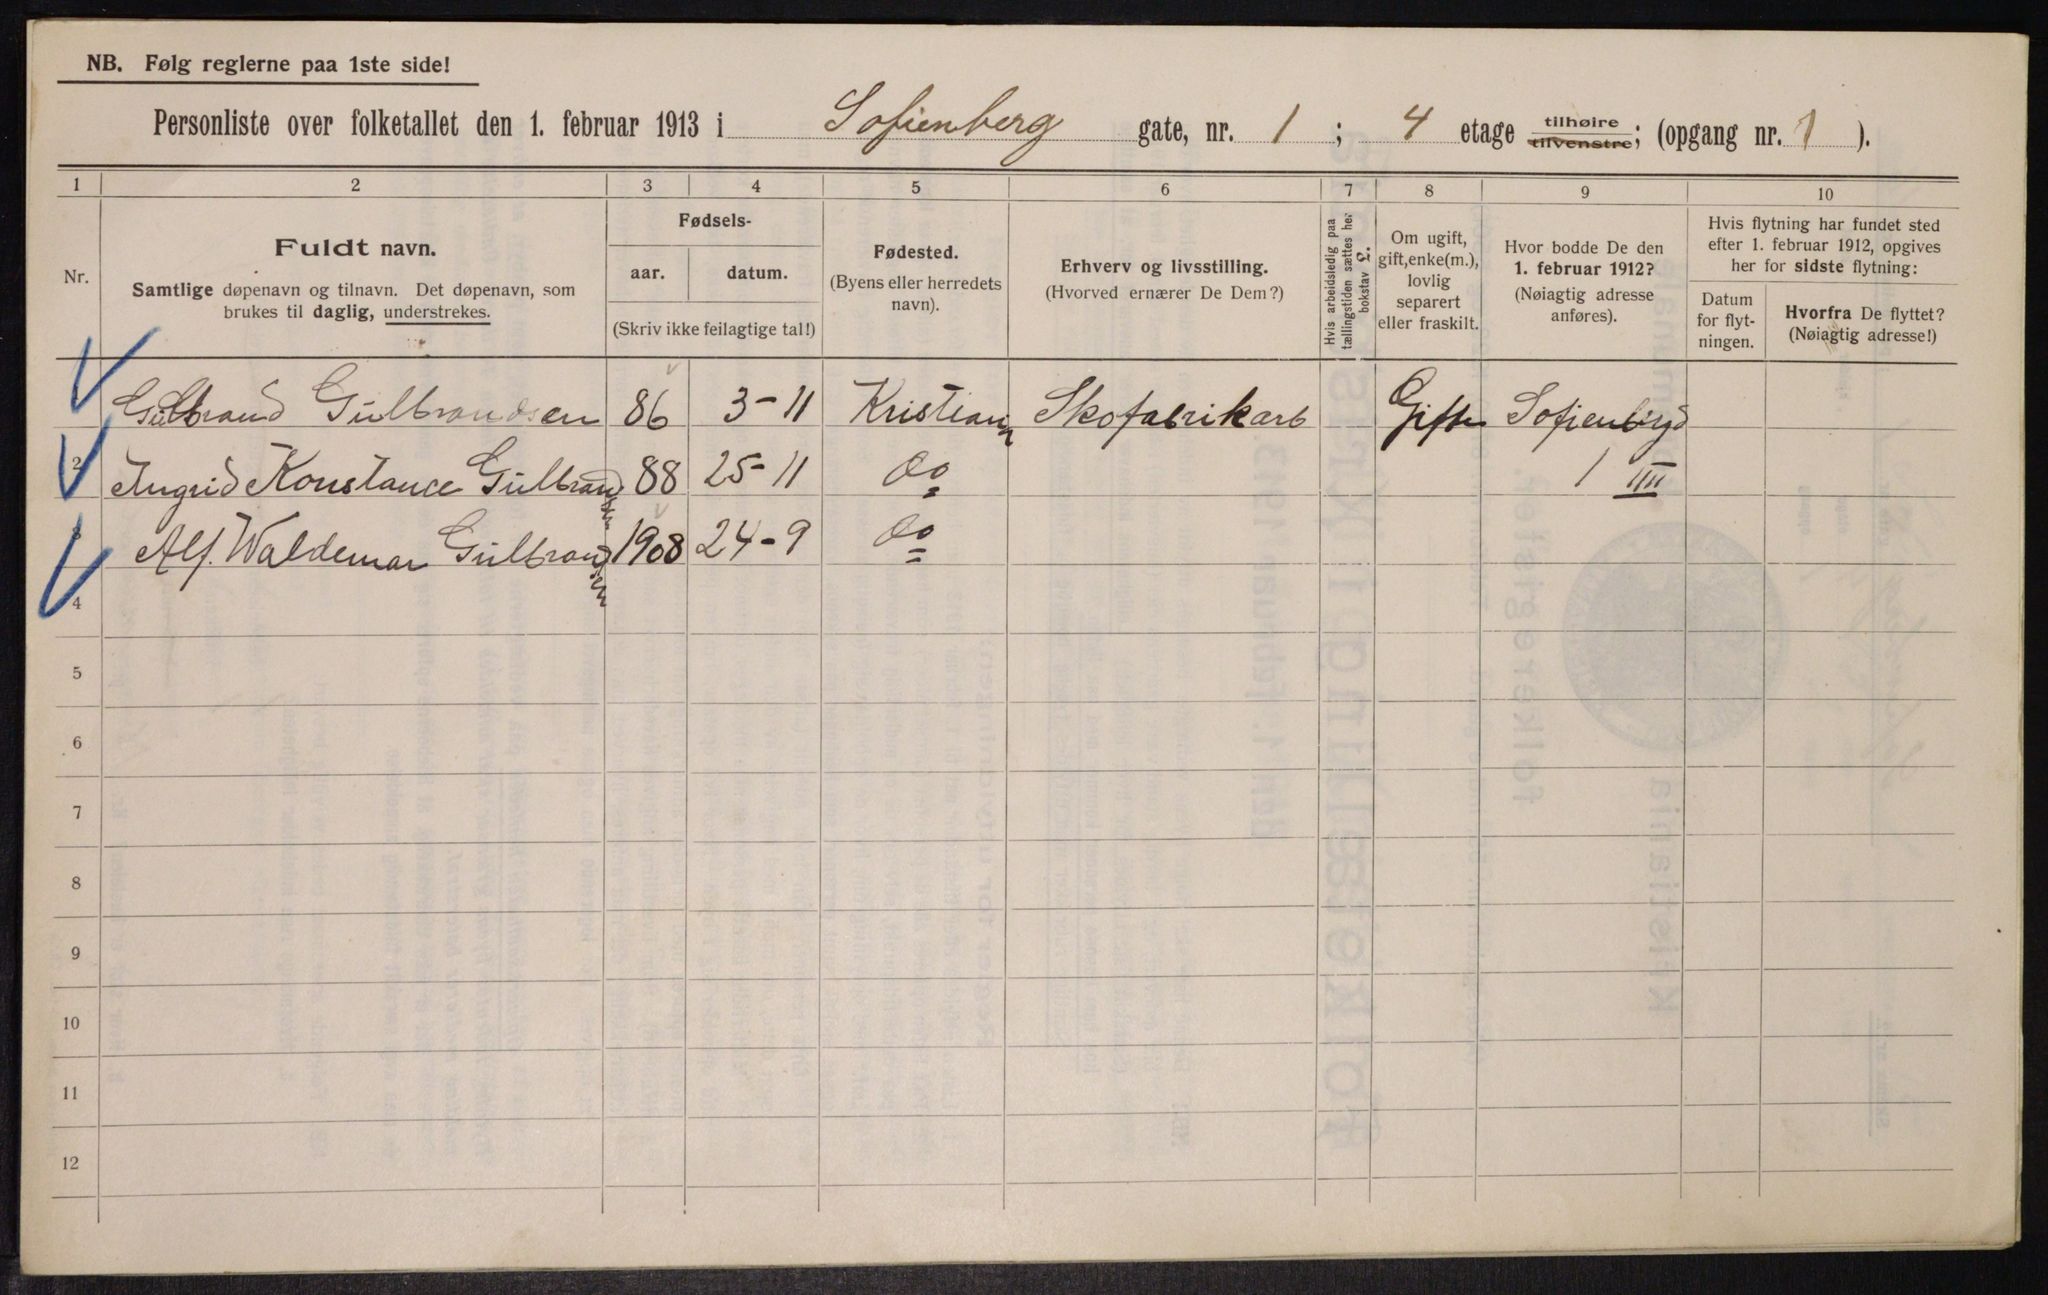 NB. Følg reglerne paa 1ste side!
Personliste over folketallet den 1. februar 1913 i Sofienberg gate, nr. 1 ; 4 etage tilhøire tilvenstre; (opgang nr. 1 ).
1 2 3 4 5 6 7 8 9 10
Nr.
Fuldt navn.
Samtlige døpenavn og tilnavn. Det døpenavn, som
brukes til daglig, understrekes.
Fødsels-
aar. datum.
(Skriv ikke feilagtige tal!)
Fødested.
(Byens eller herredets
navn).
Erhverv og livsstilling.
(Hvorved ernærer De Dem?)
Hvis arbeidsledig paa
tællingstiden sættes her
bokstav L.
Om ugift,
gift, enke(m.),
lovlig
separert
eller fraskilt.
Hvor bodde De den
1. februar 1912?
(Nøiagtig adresse
anføres).
Hvis flytning har fundet sted
efter 1. februar 1912, opgives
her for sidste flytning:
Datum
for flyt-
ningen.
Hvorfra De flyttet?
(Nøiagtig adresse!)
Gulbrand Gulbrandsen 86 3-11 Kristian Skofabrikarb Gift Sofienbgd
2 Ingrid Konstance Gulbrandsen 88 25-11 do 1 IIII
3 Alf. Waldemar Gulbrandsen 1908 24-9 do
4
5
6
7
8
9
10
11
12